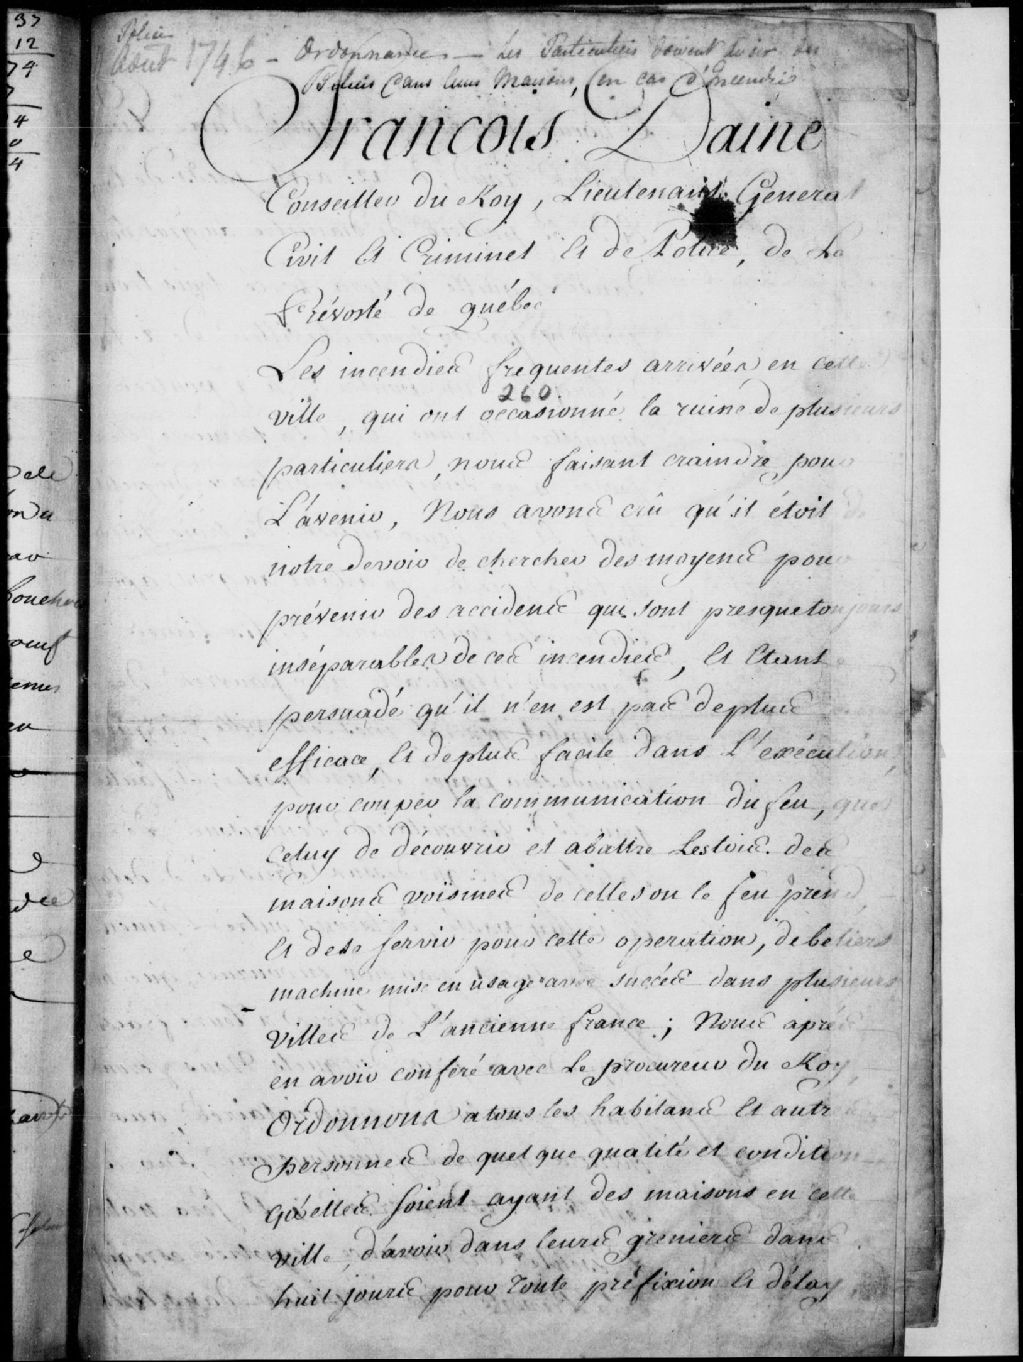 37
12
74
4
0
4
Police
Août 1746 - Ordonnance - Les Particuliers doivent avoir des
Béliers dans leurs Maisons, en cas d'Incendie
Francois Daine
Conseiller du Roy, Lieutenant General
Civil Et Criminel Et de Police, de La
Prévosté de québec
Les incendies frequentes arrivées en cette
260
ville, qui ont occasionné la ruine de plusieurs
particuliers, nous faisant craindre pour
L'avenir, Nous avons crû qu'il étoit de
notre devoir de chercher des moyens pour
prévenir des accidens qui sont presque toujours
inséparables de ces incendies, Et Etant
persuadé qu'il n'en est pas de plus
efficace, Et de plus facile dans l'exécution,
pour couper la communication du feu, que
celuy de découvrir et abattre Les toits des
maisons voisines de celles ou le feu prend,
Et de se servir pour cette operation, de beliers
machine mise en usage avec succés dans plusieurs
villes de L'ancienne france; Nous aprés
en avoir conferé avec Le procureur du Roy,
Ordonnons a tous les habitans Et autres
personnes de quelque qualité et condition
qu'elles soient ayant des maisons en cette
ville, d'avoir dans leurs greniers dans
huit jours pour toute préfixion Et délay,